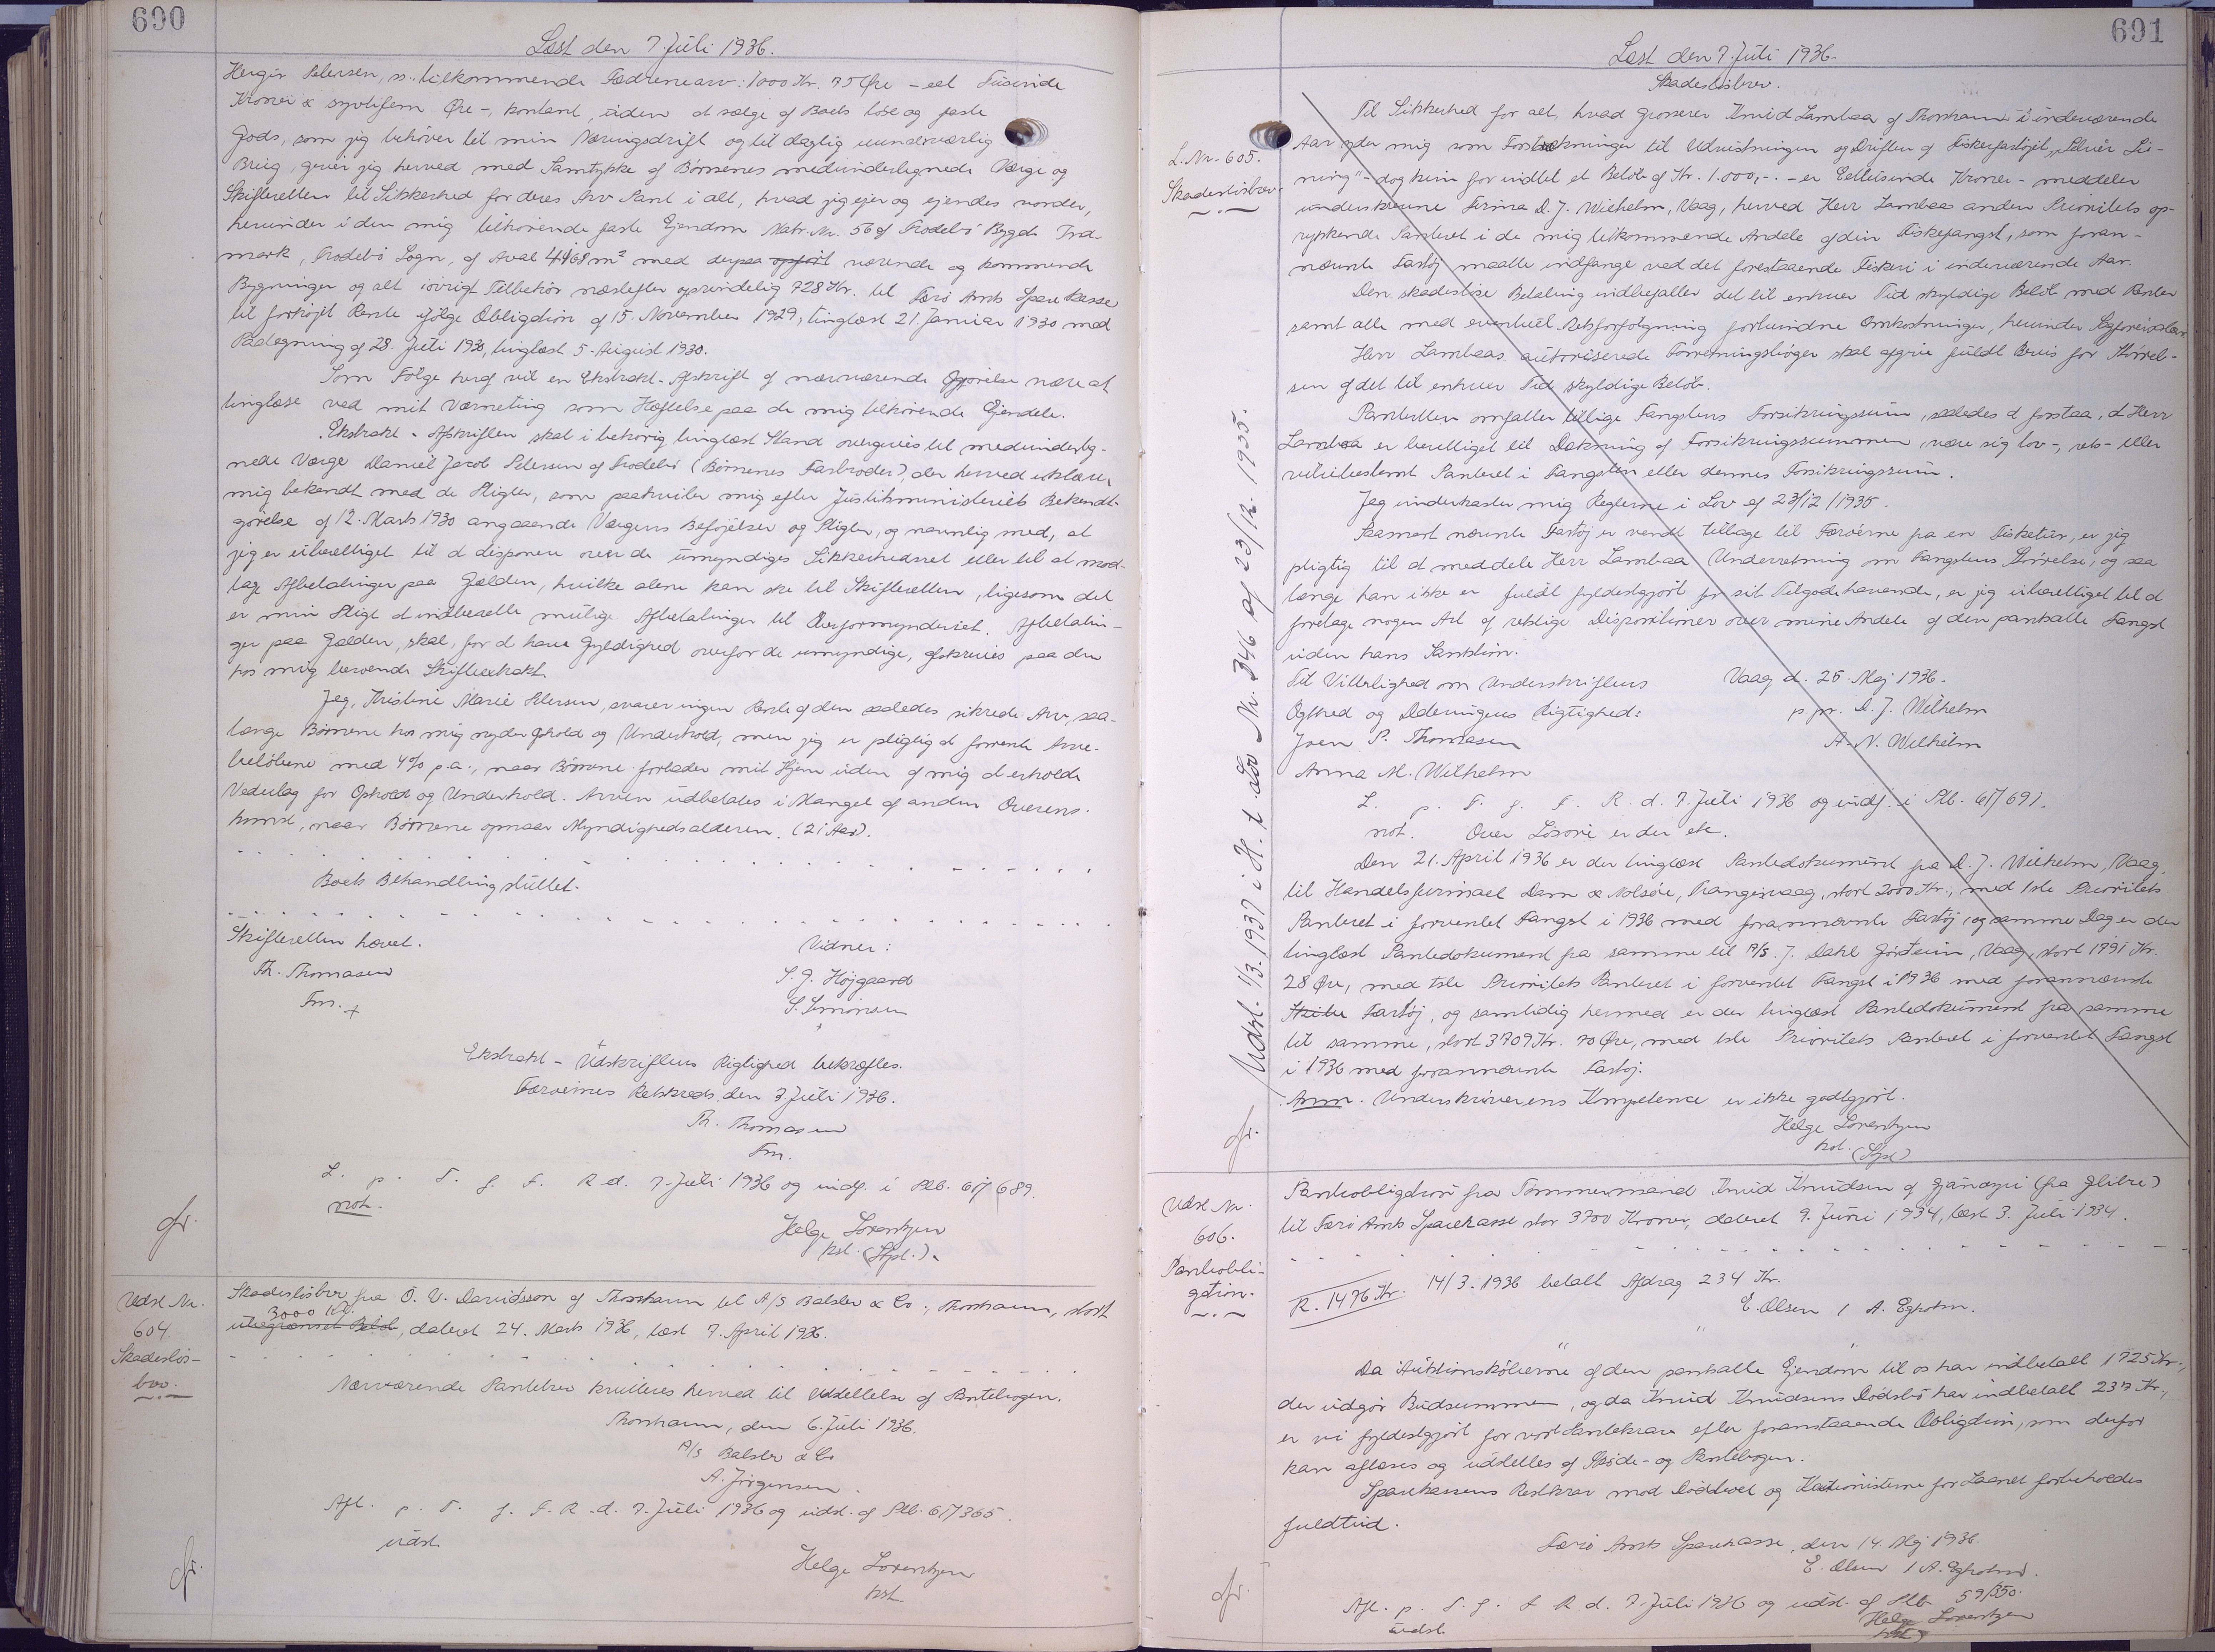 690
Læst den 7. Juli 1936.
Hergir Petersen, ss. tilkommende Fædrenearv: 1000 Kr. 75 Øre - eet Tusinde
Kroner & syvtifem Øre -, kontant, uden at sælge af Boets løse og faste
Gods, som jeg behøver til min Næringsdrift og til daglig uundværlig
Brug, giver jeg herved med Samtykke af Børnenes medundertegnede Værge og
Skifteretten til Sikkerhed for deres Arv Pant i alt, hvad jeg ejer og ejendes vorder,
herunder i den mig tilhørende faste Ejendom Matr. Nr. 56 af Trodebø Bygds Ind-
mark, Frodebø Sogn, af Areal 4468 m² med derpaa opført værende og kommende
Bygninger og alt iøvrigt Tilbehør næstefter oprindelig 728 Kr. til Færø Amts Sparekasse
til forhøjet Rente ifølge Obligation af 15. November 1929, tinglæst 21. Januar 1930 med
Paategning af 28. Juli 1930, tinglæst 5. August 1930.
Som Følge heraf vil en Ekstrakt-Afskrift af nærværende Opgørelse være at
tinglæse ved mit Værneting som Hæftelse paa de mig tilhørende Ejendele.
Ekstrakt-Afskriften skal i behørig tinglæst Stand overgives til medunderteg-
nede Værge Daniel Jacob Petersen af Frodebø (Børnenes Farbroder), der herved erklærer
mig bekendt med de Pligter, som paahviler mig efter Justitsministeriets Bekendt-
gørelse af 12. Marts 1930 angaaende Værgens Beføjelser og Pligter, og navnlig med, at
jeg er uberettiget til at disponere over de umyndiges Sikkerhedsret eller til at mod-
tage Afbetalinger paa Gælden, hvilke alene kan ske til Skifteretten, ligesom det
er min Pligt at indberette mulige Afbetalinger til Overformynderiet. Afbetalin-
ger paa Gælden, skal, for at have Gyldighed overfor de umyndige, afskrives paa den
hos mig beroende Skifteekstrakt.
Jeg, Kristine Marie Petersen, svarer ingen Rente af den saaledes sikrede Arv, saa-
længe Børnene hos mig nyder Ophold og Underhold, men jeg er pligtig at forrente Arve-
beløbene med 4% p.a., naar Børnene forlader mit Hjem uden af mig at erholde
Vederlag for Ophold og Underhold. Arven udbetales i Mangel af anden Overens-
komst, naar Børnene opnaar Myndighedsalderen. (21 Aar).
Boets Behandling sluttet.
Skifteretten hævet.
Vidner:
Th. Thomasen
S. J. Højgaard
Fm.
S. Simonsen
Ekstrakt-Udskriftens Rigtighed bekræftes.
Færøernes Retskreds, den 3. Juli 1936.
Th. Thomasen
Fm.
L. p. T. f. F. R. d. 7. Juli 1936 og indf. i Plb. 61/689.
not.
Helge Lorentzen
kst. (Spl.).
Udsl. Nr.
604.
Skadesløs-
brev.
Skadesløsbrev fra O. V. Davidsson af Thorshavn til A/S Balslev & Co., Thorshavn, stort
3000 Kr.
ubegrænset Beløb, dateret 24. Marts 1936, læst 7. April 1936.
Nærværende Pantebrev kvitteres herved til Udslettelse af Pantebogen.
Thorshavn, den 6. Juli 1936.
A/S Balslev & Co
A. Jørgensen.
Afl. p. T. f. F. R. d. 7. Juli 1936 og udsl. af Plb. 61/365.
udsl.
Helge Lorentzen
kst.
691
Læst den 7. Juli 1936.
Skadesløsbrev.
L. Nr. 605.
Skadesløsbrev.
Til Sikkerhed for alt, hvad Grosserer Knud Lambaa af Thorshavn i indeværende
Aar yder mig som Forstrækninger til Udrustningen og Driften af Fiskerfartøjet "Silver Li-
ning" - dog kun for indtil et Beløb af Kr. 1.000,-. - er Eettusinde Kroner - meddeler
underskrevne Firma D. J. Wilhelm, Vaag, herved Herr Lambaa anden Prioritets op-
rykkende Panteret i de mig tilkommende Andele af den Fiskefangst, som foran-
nævnte Fartøj maatte indfange ved det forestaaende Fiskeri i indeværende Aar.
Den skadesløse Betaling indbefatter det til enhver Tid skyldige Beløb med Renter
samt alle med eventuel Retsforfølgning forbundne Omkostninger, herunder Sagførersalær.
Herr Lambaas autoriserede Forretningsbøger skal afgive fuldt Bevis for Størrel-
sen af det til enhver Tid skyldige Beløb.
Panteretten omfatter tillige Fangstens Forsikringssum, saaledes at forstaa, at Herr
Lambaa er berettiget til Dækning af Forsikringssummen, være sig lov-, rets- eller
viljesbestemt Panteret i Fangsten eller dennes Forsikringssum.
Jeg underkaster mig Reglerne i Lov af 23/12 1935.
Saasnart nævnte Fartøj er vendt tilbage til Færøerne fra en Fisketur, er jeg
pligtig til at meddele Herr Lambaa Underretning om Fangstens Størrelse, og saa
længe han ikke er fuldt fyldestgjort for sit Tilgodehavende, er jeg uberettiget til at
foretage nogen Art af retslige Dispositioner over mine Andele af den pantsatte Fangst
uden hans Sanktion.
Til Vitterlighed om Underskriftens
Vaag d. 25. Maj 1936.
Ægthed og Dateringens Rigtighed:
p. pr. D. J. Wilhelm
Joen P. Thomasen
A. N. Wilhelm
Anna M. Wilhelm
L. p. T. f. F. R. d. 7. Juli 1936 og indf. i Plb. 61/691.
not. Over Løsøre er der etc.
Den 21. April 1936 er der tinglæst Pantedokument fra D. J. Wilhelm, Vaag,
til Handelsfirmaet Dam & Nolsøe, Trangisvaag, stort 2000 Kr., med 1ste Prioritets
Panteret i forventet Fangst i 1936 med forannævnte Fartøj, og samme Dag er der
tinglæst Pantedokument fra samme til A/S. J. Dahl Jørdsum, Vaag, stort 1791 Kr.
28 Øre, med 1ste Prioritets Panteret i forventet Fangst i 1936 med forannævnte
Skibe Fartøj, og samtidig hermed er der tinglæst Pantedokument fra samme
til samme, stort 3709 Kr. 70 Øre, med 1ste Prioritets Panteret i forventet Fangst
i 1936 med forannævnte Fartøj.
Anm. Underskriverens Kompetence er ikke godtgjort.
Helge Lorentzen
kst. (Spl)
Udsl. 1/3. 1937 i H. t. Lov Nr. 346 af 23/12. 1935.
Udsl. Nr.
606.
Pantobli-
gation.
Pantobligation fra Tømmermand Knud Knudsen af Gjánoyri (fra Glibre)
til Færø Amts Sparekasse stor 3700 Kroner, dateret 9. Juni 1934, læst 3. Juli 1934.
R. 1476 Kr. 14/3. 1936 betalt Afdrag 234 Kr.
E. Olsen / A. Egholm.
Da Auktionskøberne af den pantsatte Ejendom til os har indbetalt 1725 Kr.,
der udgør Budsummen, og da Knud Knudsens Dødsbo har indbetalt 237 Kr.,
er vi fyldestgjort for vort Pantekrav efter foranstaaende Obligation, som derfor
kan aflæses og udslettes af Skøde- og Pantebogen.
Sparekassens Restkrav mod Dødsboet og Kautionisterne for Laanet forbeholdes
fuldtud.
Færø Amts Sparekasse, den 14. Maj 1936.
E. Olsen / A. Egholm.
Afl. p. T. f. F. R. d. 7. Juli 1936 og udsl. af Plb 59/350.
udsl.
Helge Lorentzen
kst.